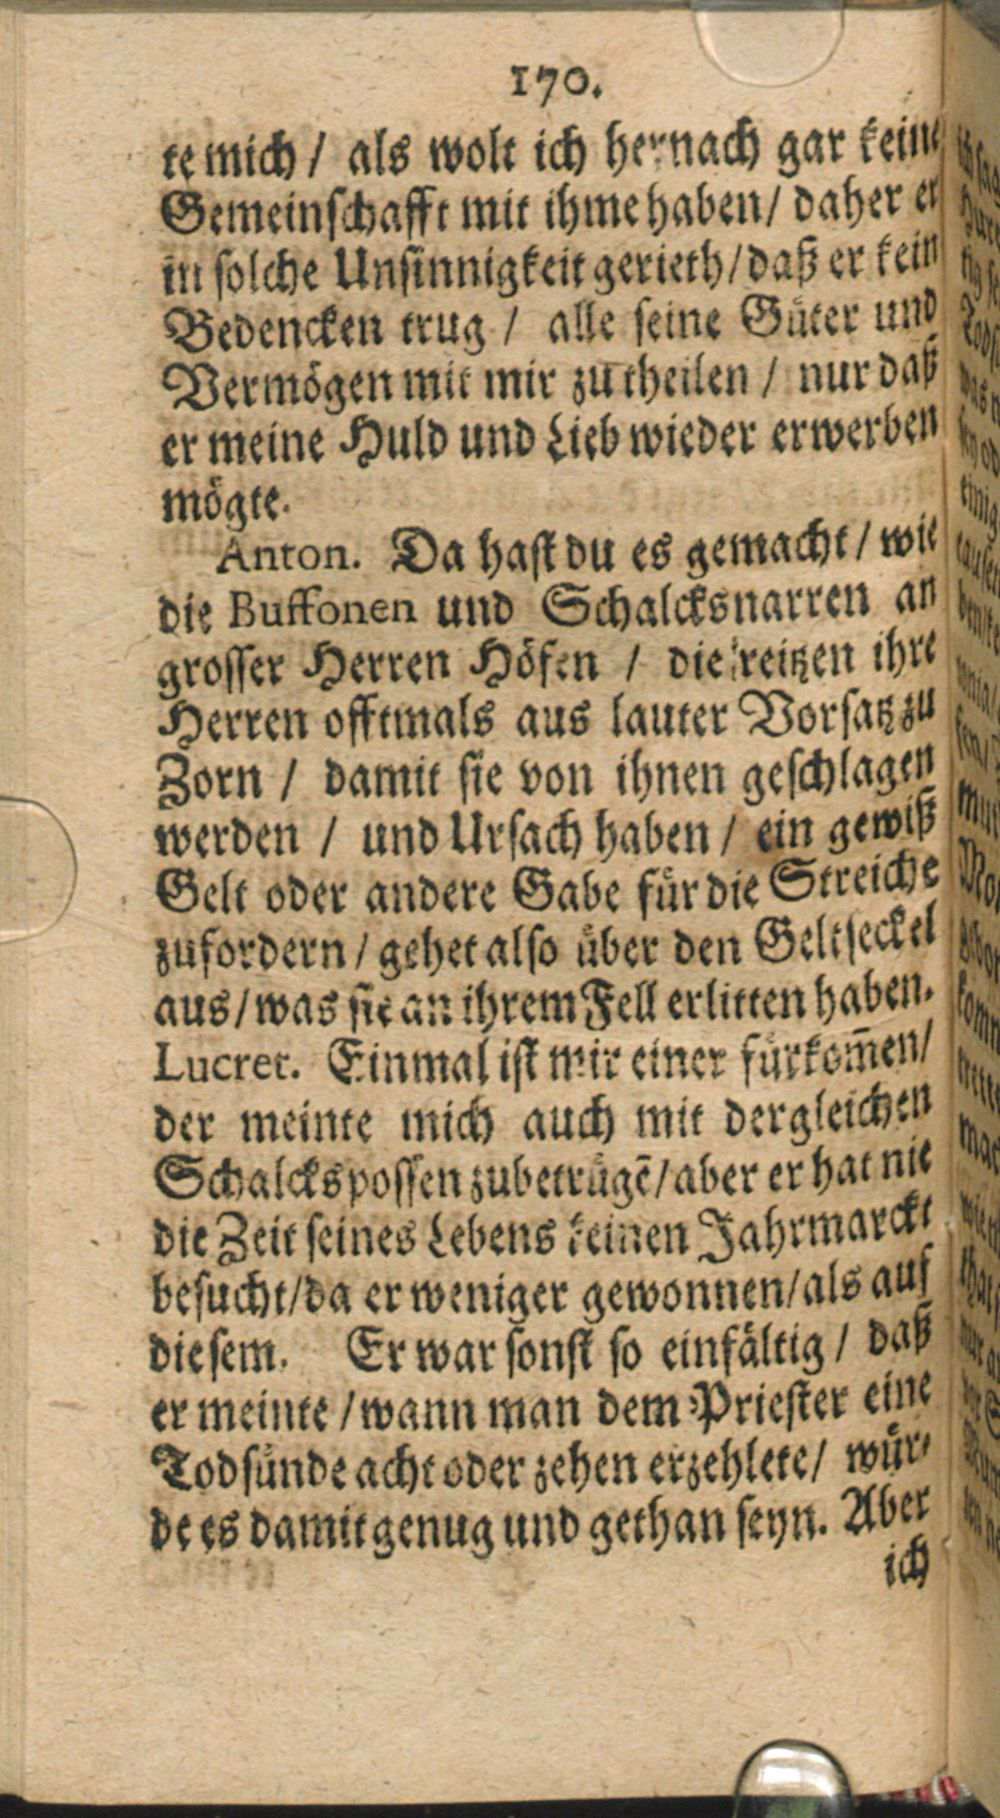 170.
te mich / als wolt ich hernach gar keine
Gemeinschafft mit ihme haben / daher er
in solche Unsinnigkeit gerieth / daß er kein
Bedencken trug / alle seine Güter und
Vermögen mit mir zu theilen / nur daß
er meine Huld und Lieb wieder erwerben
mögte.
Anton. Da hast du es gemacht / wie
die Buffonen und Schalcksnarren an
grosser Herren Höfen / die reitzen ihre
Herren offtmals aus lauter Vorsatz zu
Zorn / damit sie von ihnen geschlagen
werden / und Ursach haben / ein gewiß
Gelt oder andere Gabe für die Streiche
zufordern / gehet also über den Geltseckel
aus / was sie an ihrem Fell erlitten haben.
Lucret. Einmal ist mir einer fürkom̄en /
der meinte mich auch mit dergleichen
Schalckspossen zubetrügē / aber er hat nie
die Zeit seines Lebens keinen Jahrmarckt
besucht / da er weniger gewonnen / als auf
diesem. Er war sonst so einfältig / daß
er meinte / wann man dem Priester eine
Todsünde acht oder zehen erzehlete / wür-
de es damit genug und gethan seyn. Aber
ich